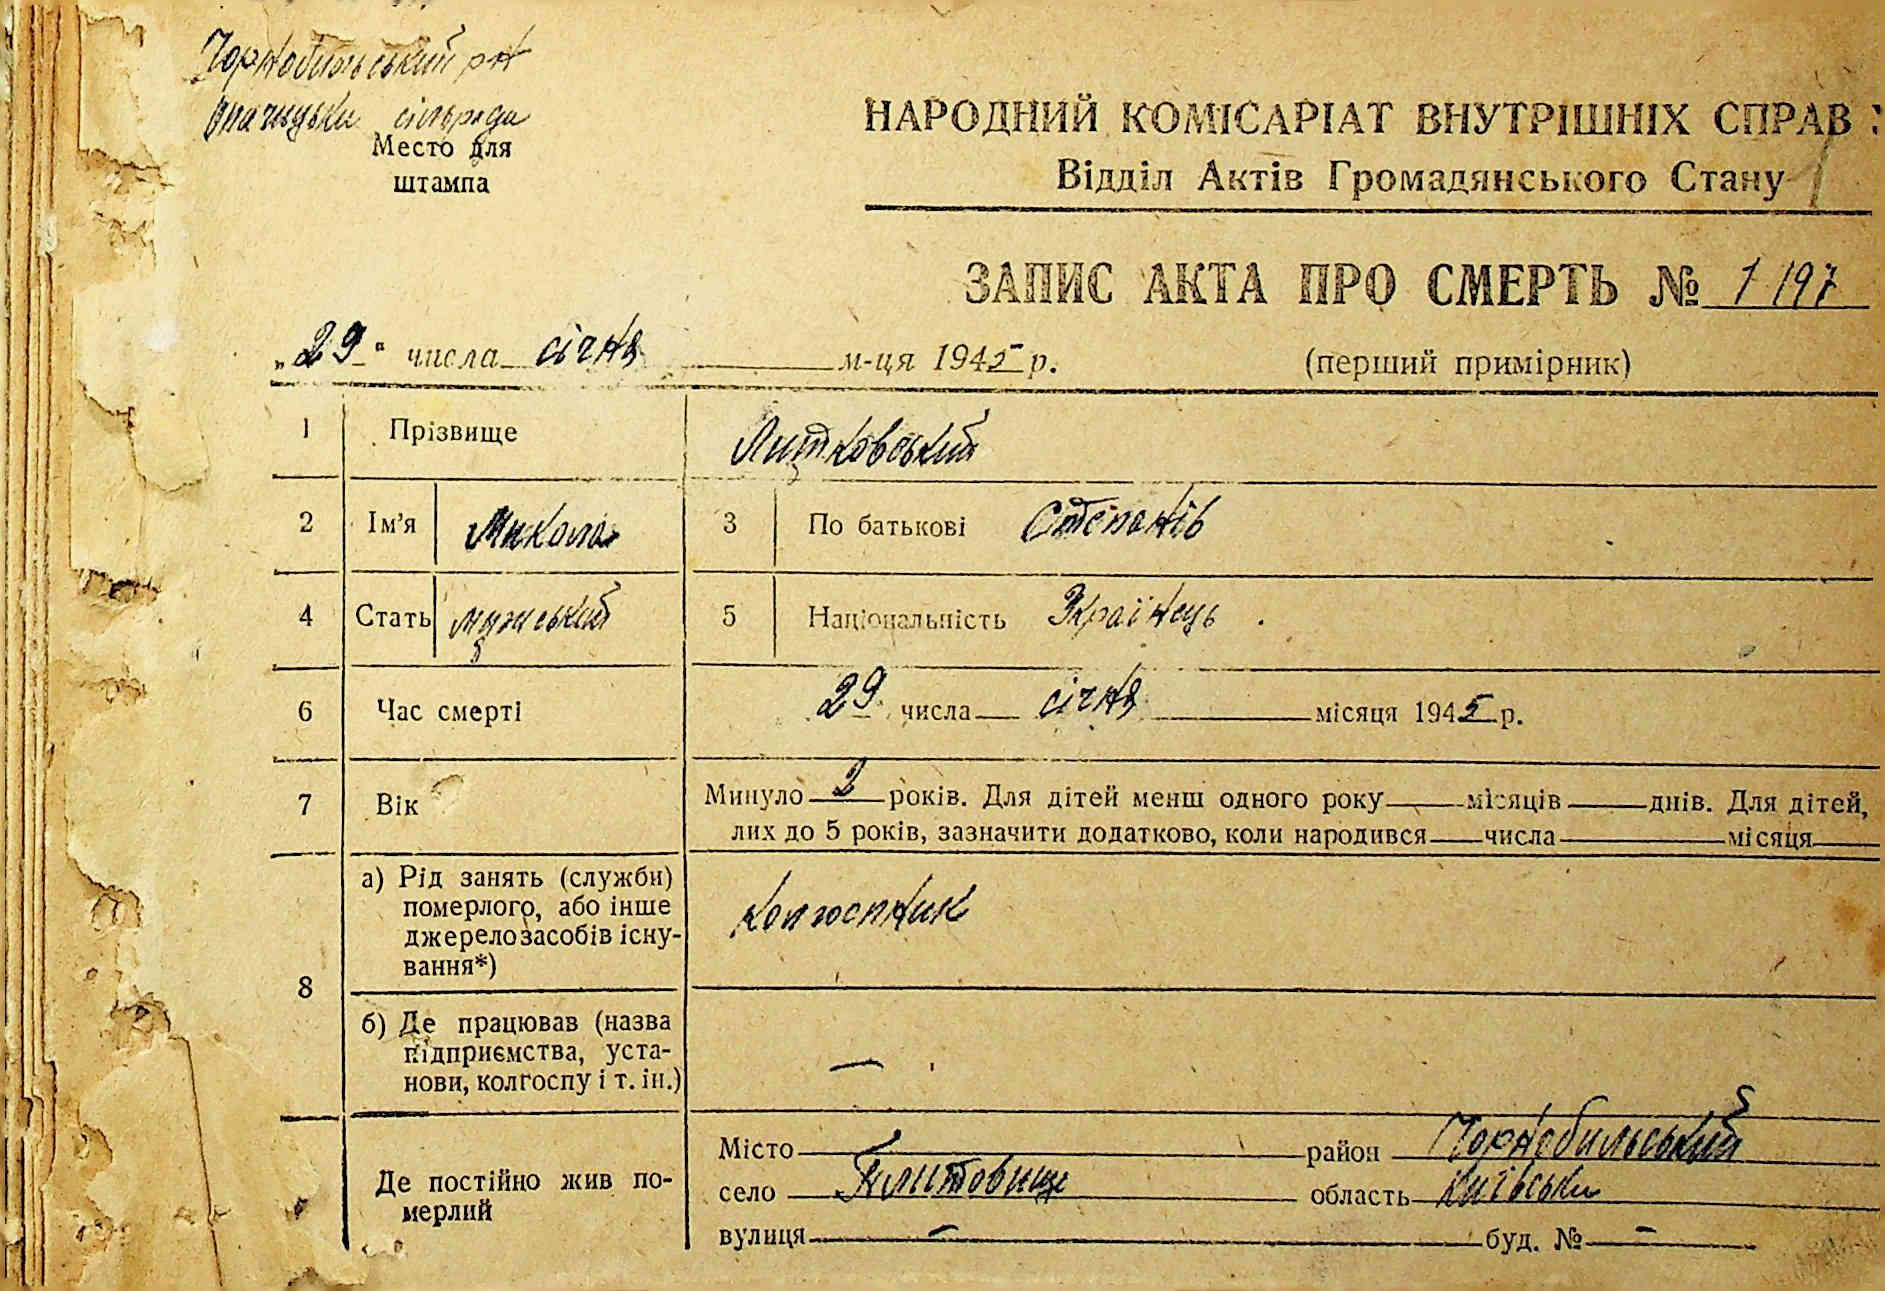 Чорнобильський р-н
Опачицька сільрада
Место для
штампа
НАРОДНИЙ КОМІСАРІАТ ВНУТРІШНІХ СПРАВ
Відділ Актів Громадянського Стану
ЗАПИС АКТА ПРО СМЕРТЬ № 1 197
„29“ числа січня м-ця 1945 р.
(перший примірник)
1 Прізвище Литковський
2 Ім’я Микола 3 По батькові Степанів
4 Стать мужський 5 Національність Українець
6 Час смерті 29 числа січня місяця 1945 р.
7 Вік Минуло 2 років. Для дітей менш одного року місяців днів. Для дітей,
лих до 5 років, зазначити додатково, коли народився числа місяця
8 а) Рід занять (служби)
померлого, або інше
джерело засобів існу-
вання*)
Колгоспник
б) Де працював (назва
підприємства, уста-
нови, колгоспу і т. ін.)
—
Де постійно жив по-
мерлий
Місто район Чорнобильський
село Плитовище область Київська
вулиця — буд. № —